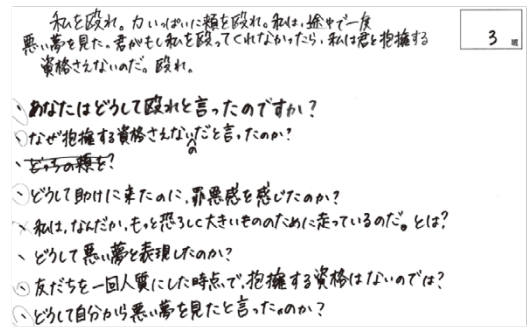 私を殴れ。力いっぱいに頬を殴れ。私は、途中で一度
悪い夢を見た。君がもし私を殴ってくれなかったら、私は君と抱擁する
資格さえないのだ。殴れ。
3 班
、あなたはどうして殴れと言ったのですか？
、なぜ抱擁する資格さえないだと言ったのか？
への
、どっちの頬を？
、どうして助けに来たのに、罪悪感を感じたのか？
、私は、なんだか、もっと恐ろしく大きいもののために走っているのだ。とは？
、どうして悪い夢と表現したのか？
、友だちを一回人質にした時点で、抱擁する資格はないのでは？
、どうして自分から悪い夢を見たと言った。のか？